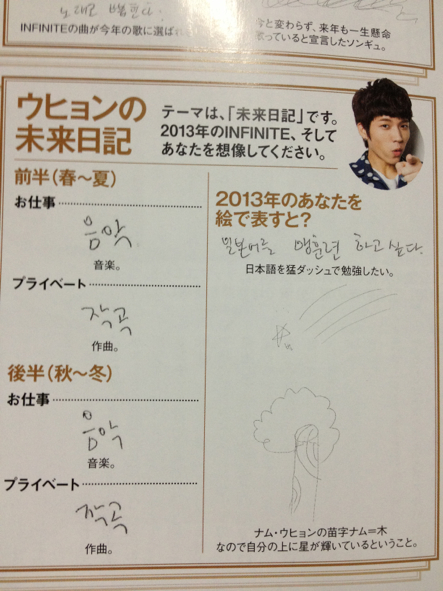 노래로 뽑힌다.
INFINITEの曲が今年の歌に選ばれ
今と変わらず、来年も一生懸命
歌っていると宣言したソンギュ。
ウヒョンの
未来日記
テーマは、「未来日記」です。
2013年のINFINITE、そして
あなたを想像してください。
前半(春〜夏)
お仕事
음악
音楽。
プライベート
작곡
作曲。
後半(秋〜冬)
お仕事
음악
音楽。
プライベート
작곡
作曲。
2013年のあなたを
絵で表すと?
일본어를 맹훈련 하고 싶다.
日本語を猛ダッシュで勉強したい。
ナム・ウヒョンの苗字ナム=木
なので自分の上に星が輝いているということ。